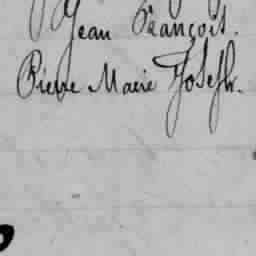 Jean François.
Pierre Marie Joseph.